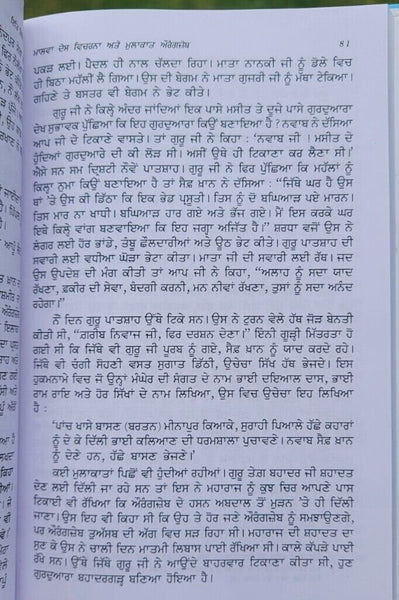 ਮਾਲਵਾ ਦੇਸ਼ ਵਿਚਰਨਾ ਅਤੇ ਮੁਲਾਕਾਤ ਔਰੰਗਜ਼ੇਬ 81
ਪਕੜ ਲਈ। ਪੈਦਲ ਹੀ ਨਾਲ ਚੱਲਦਾ ਰਿਹਾ। ਮਾਤਾ ਨਾਨਕੀ ਜੀ ਨੂੰ ਡੋਲੇ ਵਿਚ
ਹੀ ਬਿਠਾ ਮਹੱਲੀਂ ਲੈ ਗਿਆ। ਉਸ ਦੀ ਬੇਗਮ ਨੇ ਮਾਤਾ ਗੁਜਰੀ ਜੀ ਨੂੰ ਮੱਥਾ ਟੇਕਿਆ।
ਗਹਿਣੇ ਤੇ ਬਸਤਰ ਵੀ ਬੇਗਮ ਨੇ ਭੇਟ ਕੀਤੇ।
ਗੁਰੂ ਜੀ ਨੇ ਕਿਲ੍ਹੇ ਅੰਦਰ ਜਾਂਦਿਆਂ ਇਕ ਪਾਸੇ ਮਸੀਤ ਤੇ ਦੂਜੇ ਪਾਸੇ ਗੁਰਦੁਆਰਾ
ਦੇਖ ਸੁਭਾਵਕ ਪੁੱਛਿਆ ਕਿ ਇਹ ਗੁਰਦੁਆਰਾ ਕਿਉਂ ਬਣਾਇਆ ਹੈ ? ਨਵਾਬ ਨੇ ਦੱਸਿਆ
ਆਪ ਜੀ ਦੇ ਟਿਕਾਣੇ ਵਾਸਤੇ। ਤਾਂ ਗੁਰੂ ਜੀ ਨੇ ਕਿਹਾ : 'ਨਵਾਬ ਜੀ ! ਮਸੀਤ ਦੇ
ਹੁੰਦਿਆਂ ਗੁਰਦੁਆਰੇ ਦੀ ਕੀ ਲੋੜ ਸੀ। ਅਸੀਂ ਉਥੇ ਹੀ ਟਿਕਾਣਾ ਕਰ ਲੈਣਾ ਸੀ।'
ਐਸੇ ਸਨ ਸਮ ਦ੍ਰਿਸ਼ਟੀ ਨੌਵੇਂ ਪਾਤਸ਼ਾਹ। ਗੁਰੂ ਜੀ ਨੇ ਫਿਰ ਪੁੱਛਿਆ ਕਿ ਮਹੱਲਾਂ ਨੂੰ
ਕਿਲ੍ਹਾ ਨੁਮਾ ਕਿਉਂ ਬਣਾਇਆ ਹੈ ਤਾਂ ਸੈਫ਼ ਖ਼ਾਨ ਨੇ ਦੱਸਿਆ : "ਜਿੱਥੇ ਘਰ ਹੈ ਉਸ
ਥਾਂ 'ਤੇ ਉਸ ਕੀ ਡਿੱਠਾ ਕਿ ਇਕ ਭੇਡ ਪ੍ਰਸੂਤੀ। ਤਿਸ ਨੂੰ ਦੋ ਬਘਿਆੜ ਪਏ ਮਾਰਨ।
ਤਿਸ ਮਾਰ ਨਾ ਖਾਧੀ। ਬਘਿਆੜ ਹਾਰ ਗਏ ਅਤੇ ਭੱਜ ਗਏ। ਮੈਂ ਇਸ ਕਰਕੇ ਘਰ
ਇਥੇ ਬਣਾਇਆ ਕਿ ਇਹ ਜਗ੍ਹਾ ਅਜਿੱਤ ਹੈ।" ਸ਼ਰਧਾ ਵਜੋਂ ਉਸ ਨੇ
ਲੰਗਰ ਲਈ ਹੋਰ ਭਾਂਡੇ, ਤੰਬੂ ਛੌਲਦਾਰੀਆਂ ਅਤੇ ਊਠ ਭੇਟ ਕੀਤੇ। ਗੁਰੂ ਪਾਤਸ਼ਾਹ ਦੀ
ਸਵਾਰੀ ਲਈ ਵਧੀਆ ਘੋੜਾ ਭੇਟਾ ਕੀਤਾ। ਮਾਤਾ ਜੀ ਦੀ ਸਵਾਰੀ ਲਈ ਰੱਥ। ਜਦ
ਉਸ ਉਪਦੇਸ਼ ਦੀ ਮੰਗ ਕੀਤੀ ਤਾਂ ਆਪ ਜੀ ਨੇ ਕਿਹਾ, "ਅਲਾਹ ਨੂੰ ਸਦਾ ਯਾਦ
ਰੱਖਣਾ, ਫ਼ਕੀਰ ਦੀ ਸੇਵਾ, ਬੰਦਗੀ ਕਰਨੀ, ਮਨ ਨੀਵਾਂ ਰੱਖਣਾ, ਤੁਸਾਂ ਨੂੰ ਸਦਾ ਅਨੰਦ
ਰਹੇਗਾ।"
ਨੌ ਦਿਨ ਗੁਰੂ ਪਾਤਸ਼ਾਹ ਉੱਥੇ ਟਿਕੇ ਸਨ। ਉਸ ਨੇ ਟੁਰਨ ਵੇਲੇ ਹੱਥ ਜੋੜ ਬੇਨਤੀ
ਕੀਤੀ ਸੀ, "ਗ਼ਰੀਬ ਨਿਵਾਜ ਜੀ, ਫਿਰ ਦਰਸ਼ਨ ਦੇਣਾ।" ਇੰਨੀ ਗੂੜ੍ਹੀ ਮਿੱਤਰਤਾ ਹੋ
ਗਈ ਸੀ ਕਿ ਜਿੱਥੇ ਵੀ ਗੁਰੂ ਜੀ ਪੂਰਬ ਨੂੰ ਗਏ, ਸੈਫ਼ ਖ਼ਾਨ ਨੂੰ ਯਾਦ ਕਰਦੇ ਰਹੇ।
ਜਿੱਥੇ ਵੀ ਚੰਗੀ ਸੋਹਣੀ ਵਸਤ ਸੁਗਾਤ ਡਿੱਠੀ, ਉਚੇਚਾ ਸਿੱਖ ਹੱਥ ਭੇਜਦੇ। ਇਸ
ਹੁਕਮਨਾਮੇ ਵਿਚ ਜੋ ਉਨ੍ਹਾਂ ਮੰਘੇਰ ਦੀ ਸੰਗਤ ਦੇ ਨਾਮ ਭਾਈ ਦਇਆਲ ਦਾਸ, ਭਾਈ
ਰਾਮ ਰਾਇ ਅਤੇ ਹੋਰ ਸਿੱਖਾਂ ਦੇ ਨਾਮ ਲਿਖਿਆ, ਉਸ ਵਿਚ ਉਚੇਚਾ ਇਹ ਲਿਖਿਆ
ਹੈ :
'ਪਾਂਚ ਖਾਸੇ ਬਾਸਣ (ਬਰਤਨ) ਮੀਨਾਪੁਰ ਕਿਆਕੇ, ਸੁਰਾਹੀ ਪਿਆਲੇ ਹੱਛੇ ਕਹਾਰਾਂ
ਨੂੰ ਦੇ ਕੇ ਦਿੱਲੀ ਭਾਈ ਕਲਿਆਣ ਦੀ ਧਰਮਸ਼ਾਲਾ ਪੁਚਾਵਣੇ। ਨਵਾਬ ਸੈਫ਼ ਖ਼ਾਨ
ਨੂੰ ਦੇਣੇ ਹਨ, ਹੱਛੇ ਬਾਸਣ ਭੇਜਣੇ।'
ਕਈ ਮੁਲਾਕਾਤਾਂ ਪਿਛੋਂ ਵੀ ਹੁੰਦੀਆਂ ਰਹੀਆਂ। ਗੁਰੂ ਤੇਗ਼ ਬਹਾਦਰ ਜੀ ਸ਼ਹਾਦਤ
ਦੇਣ ਲਈ ਦਿੱਲੀ ਜਾ ਰਹੇ ਸਨ ਤਾਂ ਇਸ ਨੇ ਮਹਾਰਾਜ ਨੂੰ ਕੁਝ ਚਿਰ ਆਪਣੇ ਪਾਸ
ਟਿਕਾਈ ਵੀ ਰੱਖਿਆ ਕਿ ਔਰੰਗਜ਼ੇਬ ਦੇ ਹਸਨ ਅਬਦਾਲ ਤੋਂ ਮੁੜਨ 'ਤੇ ਹੀ ਦਿੱਲੀ
ਜਾਣਾ। ਉਸ ਇਹ ਵੀ ਕਿਹਾ ਸੀ ਕਿ ਉਹ ਤੇ ਹੋਰ ਜਣੇ ਔਰੰਗਜ਼ੇਬ ਨੂੰ ਸਮਝਾਉਣਗੇ,
ਪਰ ਔਰੰਗਜ਼ੇਬ ਤੁਅੱਸਬ ਦੀ ਅੱਗ ਵਿਚ ਸੜ ਰਿਹਾ ਸੀ। ਮਹਾਰਾਜ ਦੀ ਸ਼ਹਾਦਤ ਦਾ
ਸੁਣ ਕੇ ਉਸ ਨੇ ਚਾਲੀ ਦਿਨ ਮਾਤਮੀ ਲਿਬਾਸ ਪਾਈ ਰੱਖਿਆ ਸੀ। ਕਾਲੇ ਕੱਪੜੇ ਪਾਈ
ਰੱਖੇ ਸਨ। ਉੱਥੇ ਜਿੱਥੇ ਗੁਰੂ ਜੀ ਨੇ ਆਉਂਦੇ ਬਾਹਰਵਾਰ ਟਿਕਾਣਾ ਕੀਤਾ ਸੀ, ਹੁਣ
ਗੁਰਦੁਆਰਾ ਬਹਾਦਰਗੜ੍ਹ ਬਣਿਆ ਹੋਇਆ ਹੈ।